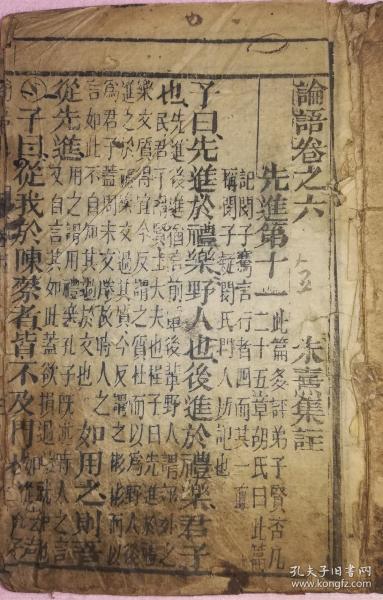 論語卷之六
朱熹集註
先進第十一
此篇多評弟子賢否凡
二十五章胡氏曰此篇
記閔子騫言行者四而其一直
稱閔子疑閔氏門人所記也
子曰先進於禮樂野人也後進於禮樂君子
也
先進後進猶言前輩後輩野人謂郊外之
民君子謂賢士大夫也程子曰先進於禮
樂文質得宜今反謂之質朴而以爲野人後
進之於禮樂文過其質今反謂之彬彬而以
爲君子蓋周末文勝故時人之
言如此不自知其過於文也
如用之則吾
從先進
用之謂用禮樂孔子既述時人之言
又自言其如此蓋欲損過以就中也
子曰從我於陳蔡者皆不及門
孔夫子旧书网